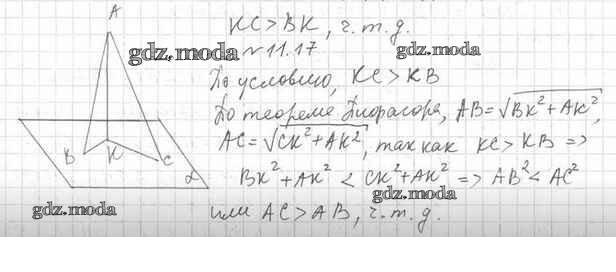 A
KC > BK, ч.т.д.
gdz.moda
№ 11.17
gdz.moda
По условию, KC > KB
По теореме Пифагора, AB = √BK² + AK²,
AC = √CK² + AK², так как KC > KB =>
B K C
α
BK² + AK² < CK² + AK² => AB² < AC²
gdz.moda
gdz.moda
или AC > AB, ч.т.д.